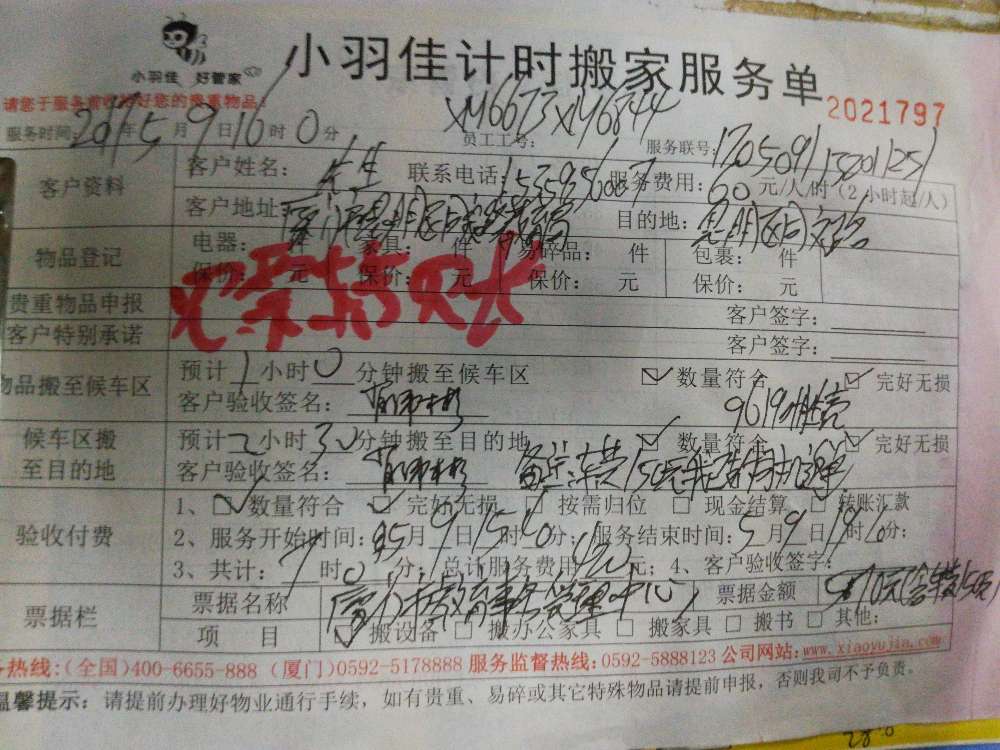 小羽佳 好管家
小羽佳计时搬家服务单
请您于服务前收拾好您的贵重物品!
2021797
服务时间: 2017年5月9日16时0分 员工工号: XM6673 XM6844 服务联号: 170509115201251
客户资料
客户姓名: 先生 联系电话: 服务费用: 60元/人/时(2小时起/人)
客户地址: 目的地:
物品登记
电器: 件 家具: 件 易碎品: 件 包裹: 件
保价: 元 保价: 元 保价: 元 保价: 元
贵重物品申报 客户签字:
客户特别承诺 客户签字:
物品搬至候车区
预计1小时0分钟搬至候车区 数量符合 完好无损
客户验收签名:
候车区搬至目的地
预计2小时30分钟搬至目的地 数量符合 完好无损
客户验收签名:
验收付费
1、数量符合 完好无损 按需归位 现金结算 转账汇款
2、服务开始时间: 5月9日15时0分; 服务结束时间: 5月9日19时0分;
3、共计: 7时0分; 总计服务费用420元; 4、客户验收签字:
票据栏
票据名称 票据金额 570元(含车费150元)
项 目 搬设备 搬办公家具 搬家具 搬书 其他:
务热线:(全国)400-6655-888 (厦门)0592-5178888 服务监督热线:0592-5888123 公司网站:www.xiaoyujia.com
温馨提示: 请提前办理好物业通行手续, 如有贵重、易碎或其它特殊物品请提前申报, 否则我司不予负责。